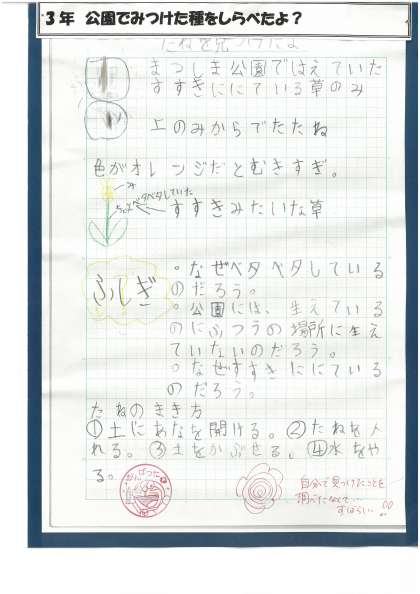 3年 公園でみつけた種をしらべたよ？
たねを見つけたよ
まつしま公園ではえていた
すすきににている草のみ
上のみからでたたね
色がオレンジだとむきすぎ。
ベタベタしていた
すすきみたいな草
ふしぎ
○なぜベタベタしている
のだろう。
○公園には、生えている
のにふつうの場所に生え
ていないのだろう。
○なぜすすきににている
のだろう。
たねのまき方
①土にあなを開ける。②たねを入
れる。③土をかぶせる、④水をや
る。
自分で見つけたことを
調べたなんて…
すばらしい!!